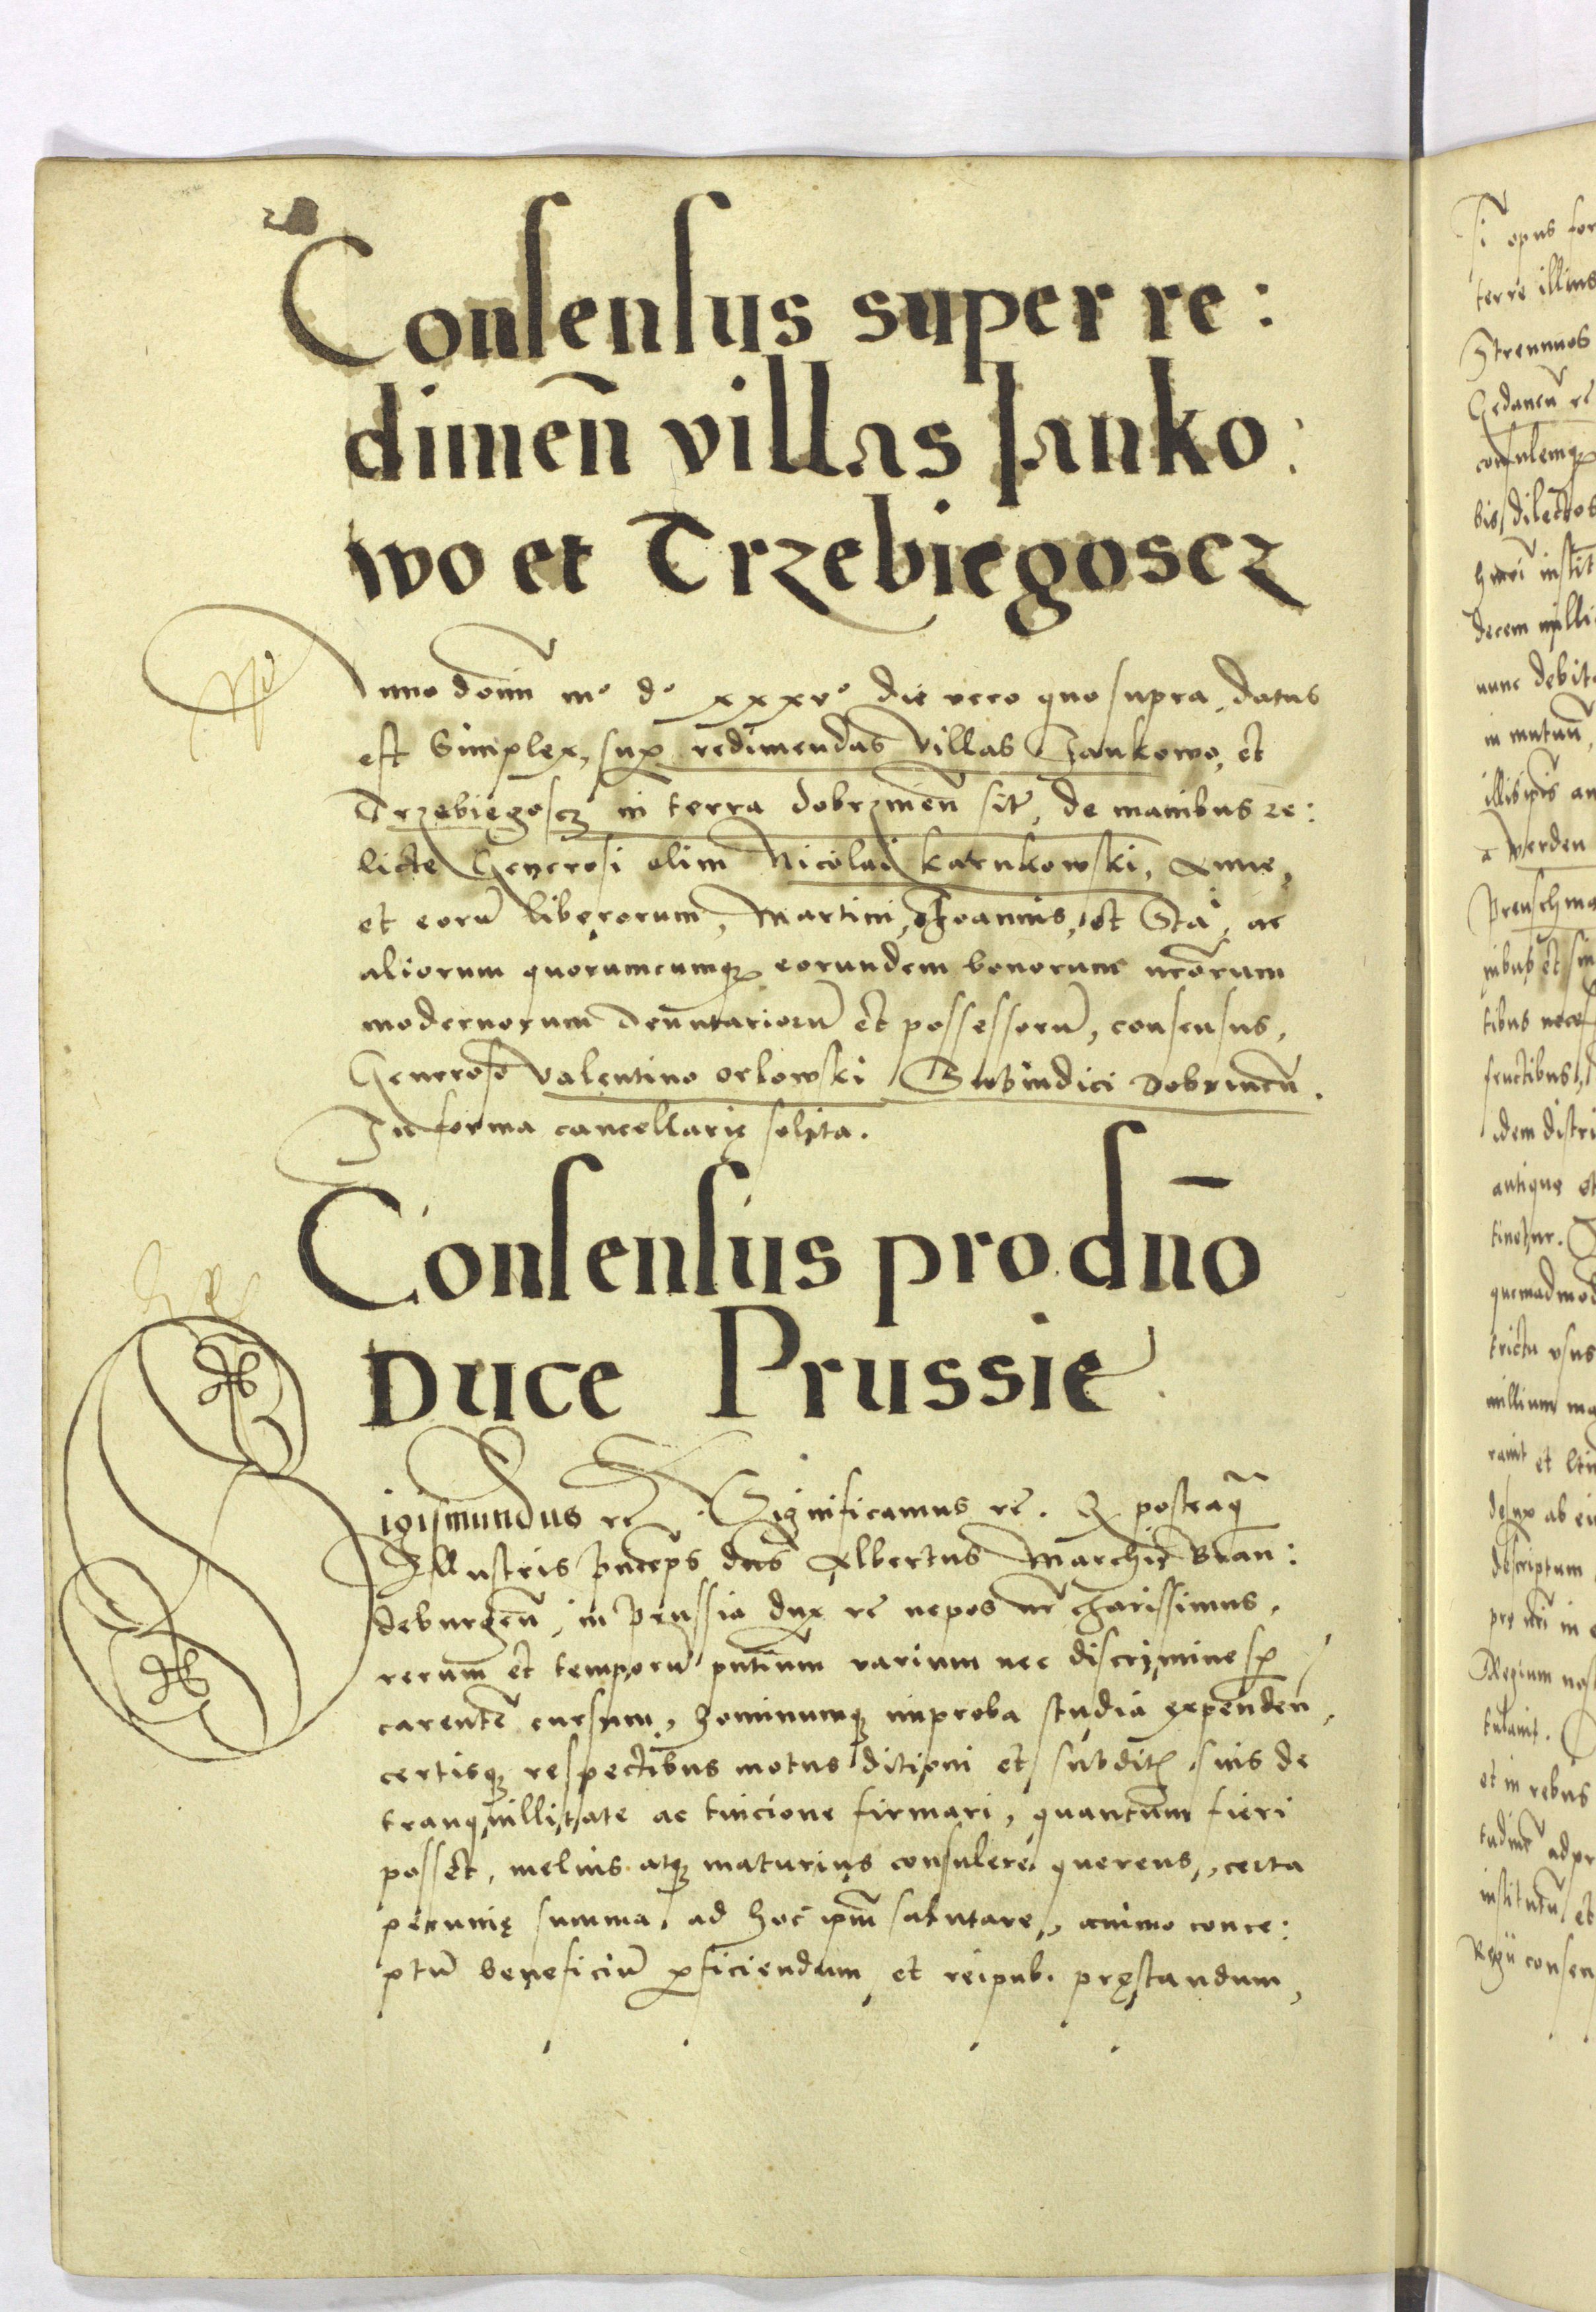 Consensus super re:
dimen̄ villas Janko:
wo et Trzebiegoscz
Anno domī mo do xxxvo die vero quo supra, datus
est Simplex, sup redimendas villas Jankowo, et
Trzebięgoscz in terra dobrzinen̄ sit̄, de manibus re:
licte Generosi olim Nicolai karnkowski, Anne,
et eorū liberorum, Martini, Joannis, et Sta, ac
aliorum quorumcumq eorundem bonorum
modernorum et possessorū, consensus,
Generoso valentino orlowski Subiudici Dobrinen̄.
In forma cancellarię solita.
Consensus pro dn̄o
Duce Prussie
Sigismundus rc̄. Significamus rc̄. Q posteaq̄
Illustris Princeps dn̄s Albertus Marchio Bran:
deburgen̄, in Prussia dux rc̄ nepos nr̄ charissimus,
rerum et temporū pn̄tium varium nec discrimine sp
carentē cursum, hominumq improba studia expenden̄,
certisq respectibus motus ditioni et subdit suis de
tranquillitate ac tuicione firmari, quantum fieri
posset, melius atq maturius consulere querens, certa
pecunię summa, ad hoc ipm̄ salutare, animo conce:
ptū beneficiū pficiendum et reipub. pręstandum,
si opus for
terre illius
Strennuos
Gedanen̄ rc̄
consulemq
bis dilectos
instit
Decem milli
nunc debit
in mutuū,
a werden
idem distri
antique et
tinetur.
quemadmod
trictu usus
millium ma
descriptum
Regium nos
et in rebus
institutū et
Regii consen